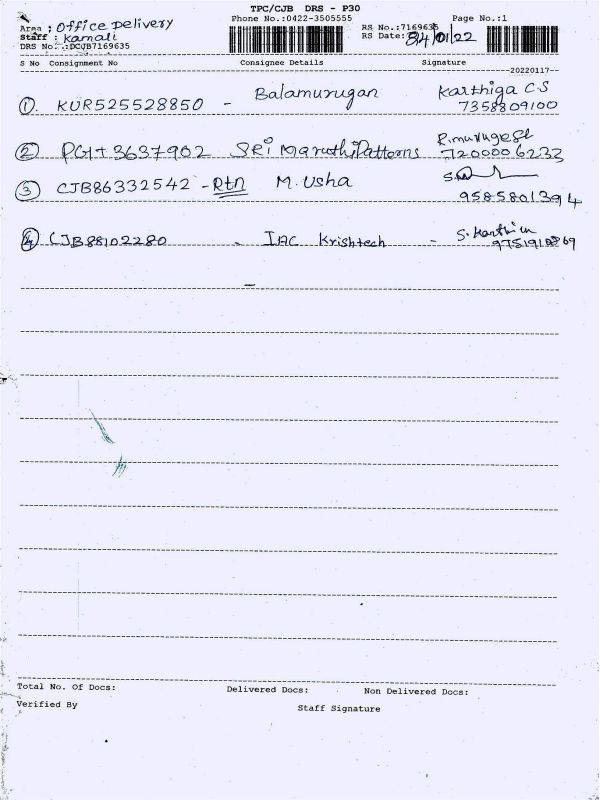 TPC/CJB DRS - P30
Area : Office Delivery
Phone No.:0422-3505555
RS No.:7169635
Page No.:1
Staff : Kamali
RS Date: 24/01/22
DRS No.:DCJB7169635
S No Consignment No Consignee Details Signature
--20220117--
① KUR525528850 - Balamurugan Karthiga CS
7358809100
② 3637902 SRi Maruthi Patterns R.murugesh
7200006233
③ CJB86332542 - Rtn M. Usha
9585801394
④ CJB88102280 - IAC Krishtech - S. Karthi
Total No. Of Docs: Delivered Docs: Non Delivered Docs:
Verified By Staff Signature